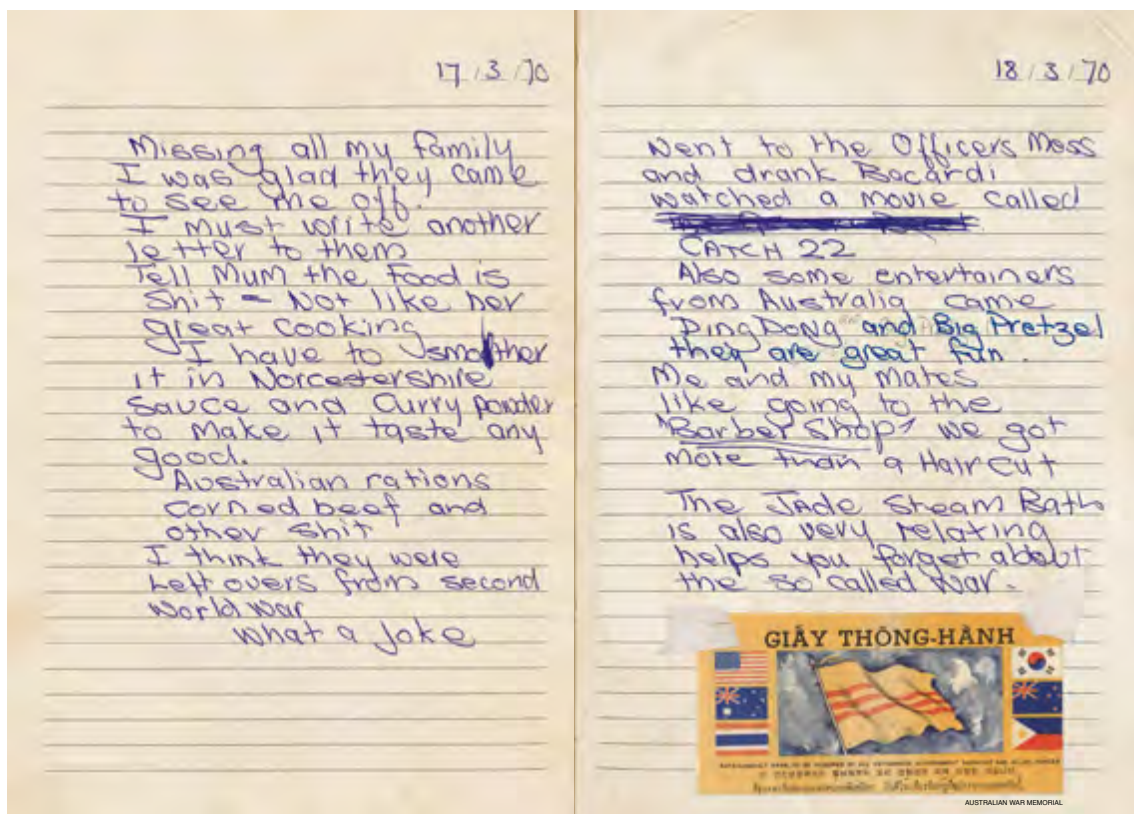 17/3/70
Missing all my family
I was glad they came
to see me off.
I must write another
letter to them
Tell Mum the Food is
Shit - Not like her
great cooking
I have to smother
it in Worcestershire
Sauce and Curry powder
to make it taste any
good.
Australian rations
corned beef and
other shit
I think they were
Left overs from second
World War
What a Joke
18/3/70
Went to the Officers Mess
and drank Bacardi
watched a movie called
CATCH 22
Also some entertainers
from Australia came
Ding Dong and Big Pretzel
they are great fun.
Me and my Mates
like going to the
"Barber Shop" we got
more than a Hair cut
The JAde Steam Bath
is also very relating
helps you forget about
the so called War.
GIẤY THÔNG-HÀNH
SAFE-CONDUCT PASS TO BE HONORED BY ALL VIETNAMESE GOVERNMENT AGENCIES AND ALLIED FORCES
AUSTRALIAN WAR MEMORIAL